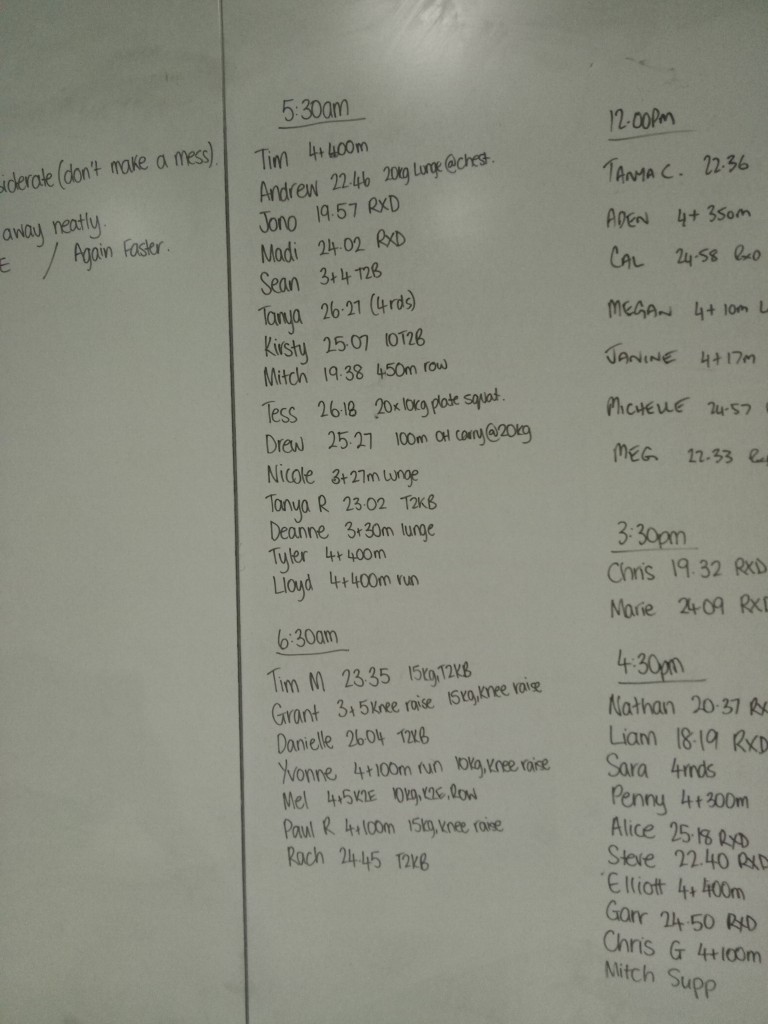 siderate (don't make a mess).
away neatly.
E / Again Faster.
5:30am
Tim 4+400m
Andrew 22.46 20kg Lunge @ chest.
Jono 19.57 RXD
Madi 24.02 RXD
Sean 3+4 T2B
Tanya 26.27 (4rds)
Kirsty 25.07 10T2B
Mitch 19.38 450m row
Tess 26.18 20x10kg plate squat.
Drew 25.27 100m OH carry@20kg
Nicole 3+27m lunge
Tanya R 23.02 T2KB
Deanne 3+30m lunge
Tyler 4+400m
Lloyd 4+400m run
6:30am
Tim M 23.35 15kg, T2KB
Grant 3+5 Knee raise 15kg, knee raise
Danielle 26.04 T2KB
Yvonne 4+100m run 10kg, knee raise
Mel 4+5K2E 10kg, K2E, Row
Paul R 4+100m 15kg, knee raise
Rach 24.45 T2KB
12.00pm
TANYA C. 22.36
ADEN 4+350m
CAL 24.58 RXD
MEGAN 4+10m L
JANINE 4+17m
MICHELLE 24.57
MEG 22.33
3:30pm
Chris 19.32 RXD
Marie 24.09 RXD
4:30pm
Nathan 20.37 RX
Liam 18.19 RXD
Sara 4rnds
Penny 4+300m
Alice 25.18 RXD
Steve 22.40 RXD
Elliott 4+400m
Garr 24.50 RXD
Chris G 4+100m
Mitch Supp